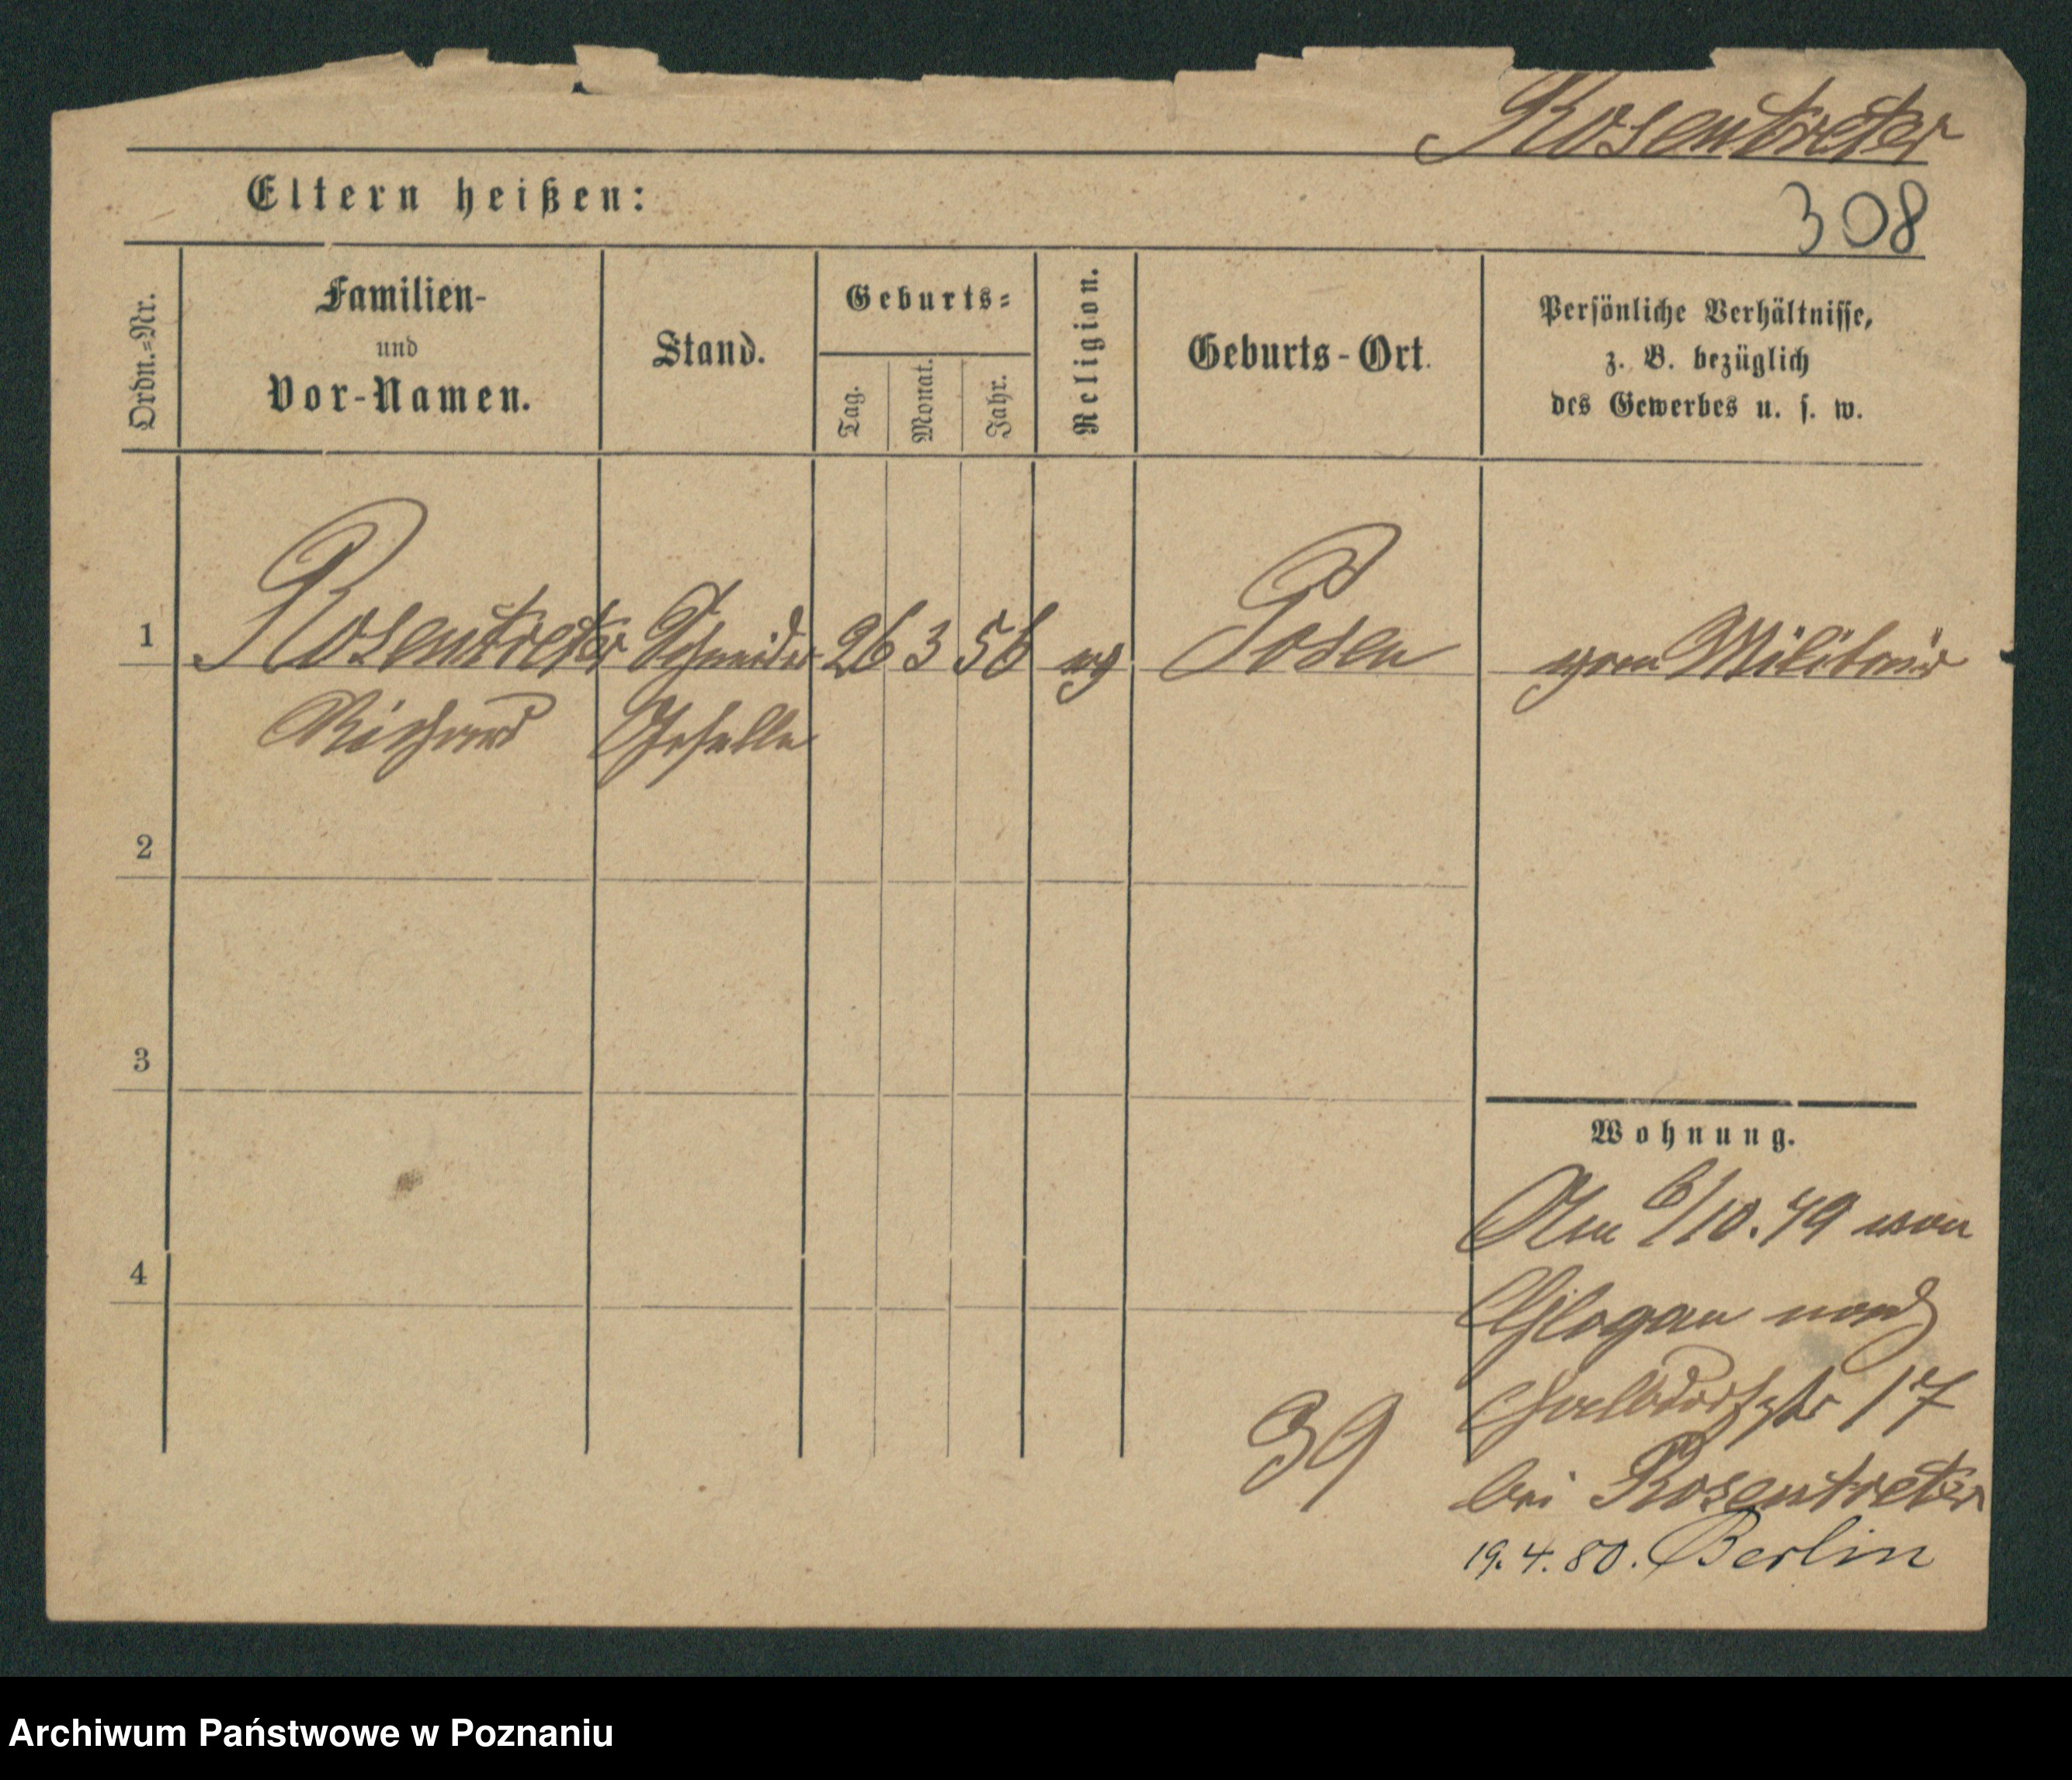 Rosentreter
Eltern heißen:
308
Ordn.=Nr.
Familien-
und
Vor-Namen.
Stand.
Geburts=
Tag.
Monat.
Jahr.
Religion.
Geburts-Ort.
Persönliche Verhältnisse,
z. B. bezüglich
des Gewerbes u. s. w.
1
Rosentreter Schneider 26 3 56 ev Posen vom Militair
Richard Geselle
2
3
Wohnung.
Am 6/10.79 von
4
Glogau nach
17
39
bei Rosentreter
19.4.80. Berlin
Archiwum Państwowe w Poznaniu